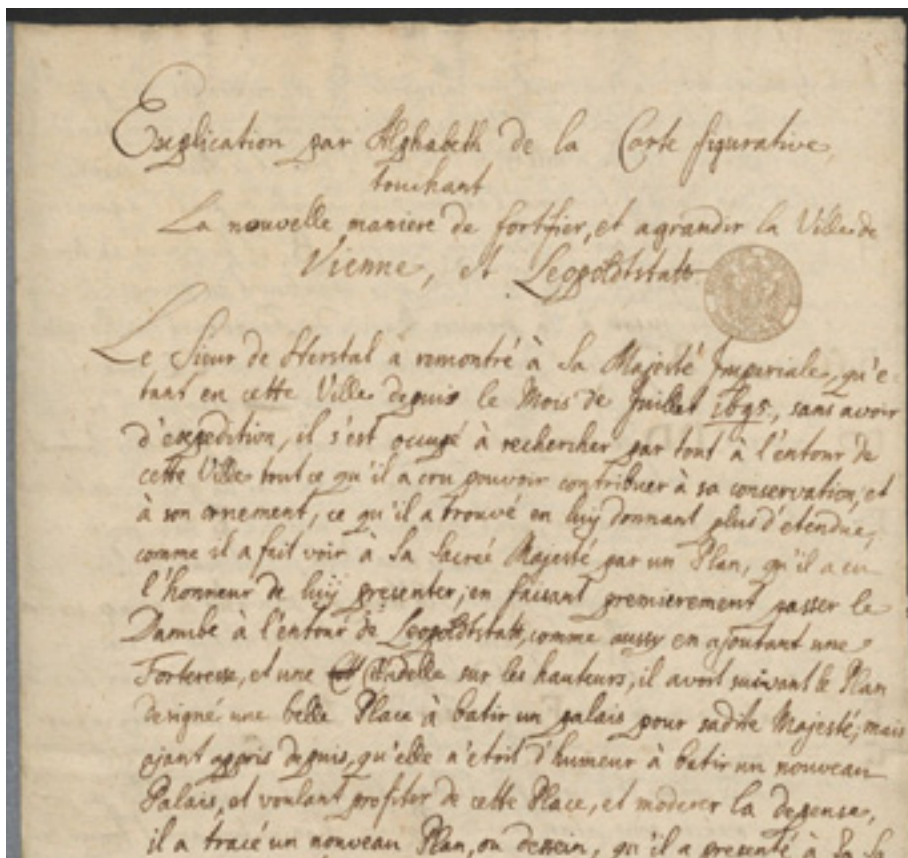 Explication par Alphabeth de la Carte figurative,
touchant
La nouvelle maniere de fortfier, et agrandir la Ville de
Vienne, et Leopoldtstatt.
Le Sieur de Herstal a remontré à Sa Majesté Imperiale, qu'e-
tant en cette Ville depuis le Mois de Juillet 1695., sans avoir
d'expedition, il s'est occupé à rechercher par tout à l'entour de
cette Ville tout ce qu'il a cru pouvoir contribuer à sa conservation, et
à son ornement, ce qu'il a trouvé en luy donnant plus d'etendue,
comme il a fait voir à Sa Sacrée Majesté par un Plan, qu'il a eu
l'honneur de luy presenter, en faisant premierement passer le
Danube à l'entour de Leopoldtstatt, comme aussy en ajoutant une
Forteresse, et une Citadelle sur les hauteurs; il avoit suivant le Plan
designé une belle Place à batir un palais pour sadite Majesté; mais
ajant appris depuis, qu'elle n'etoit d'humeur à batir un nouveau
Palais, et voulant profiter de cette Place, et moderer la depense,
il a tracé un nouveau Plan, ou dessein, qu'il a presenté à Sa Sa